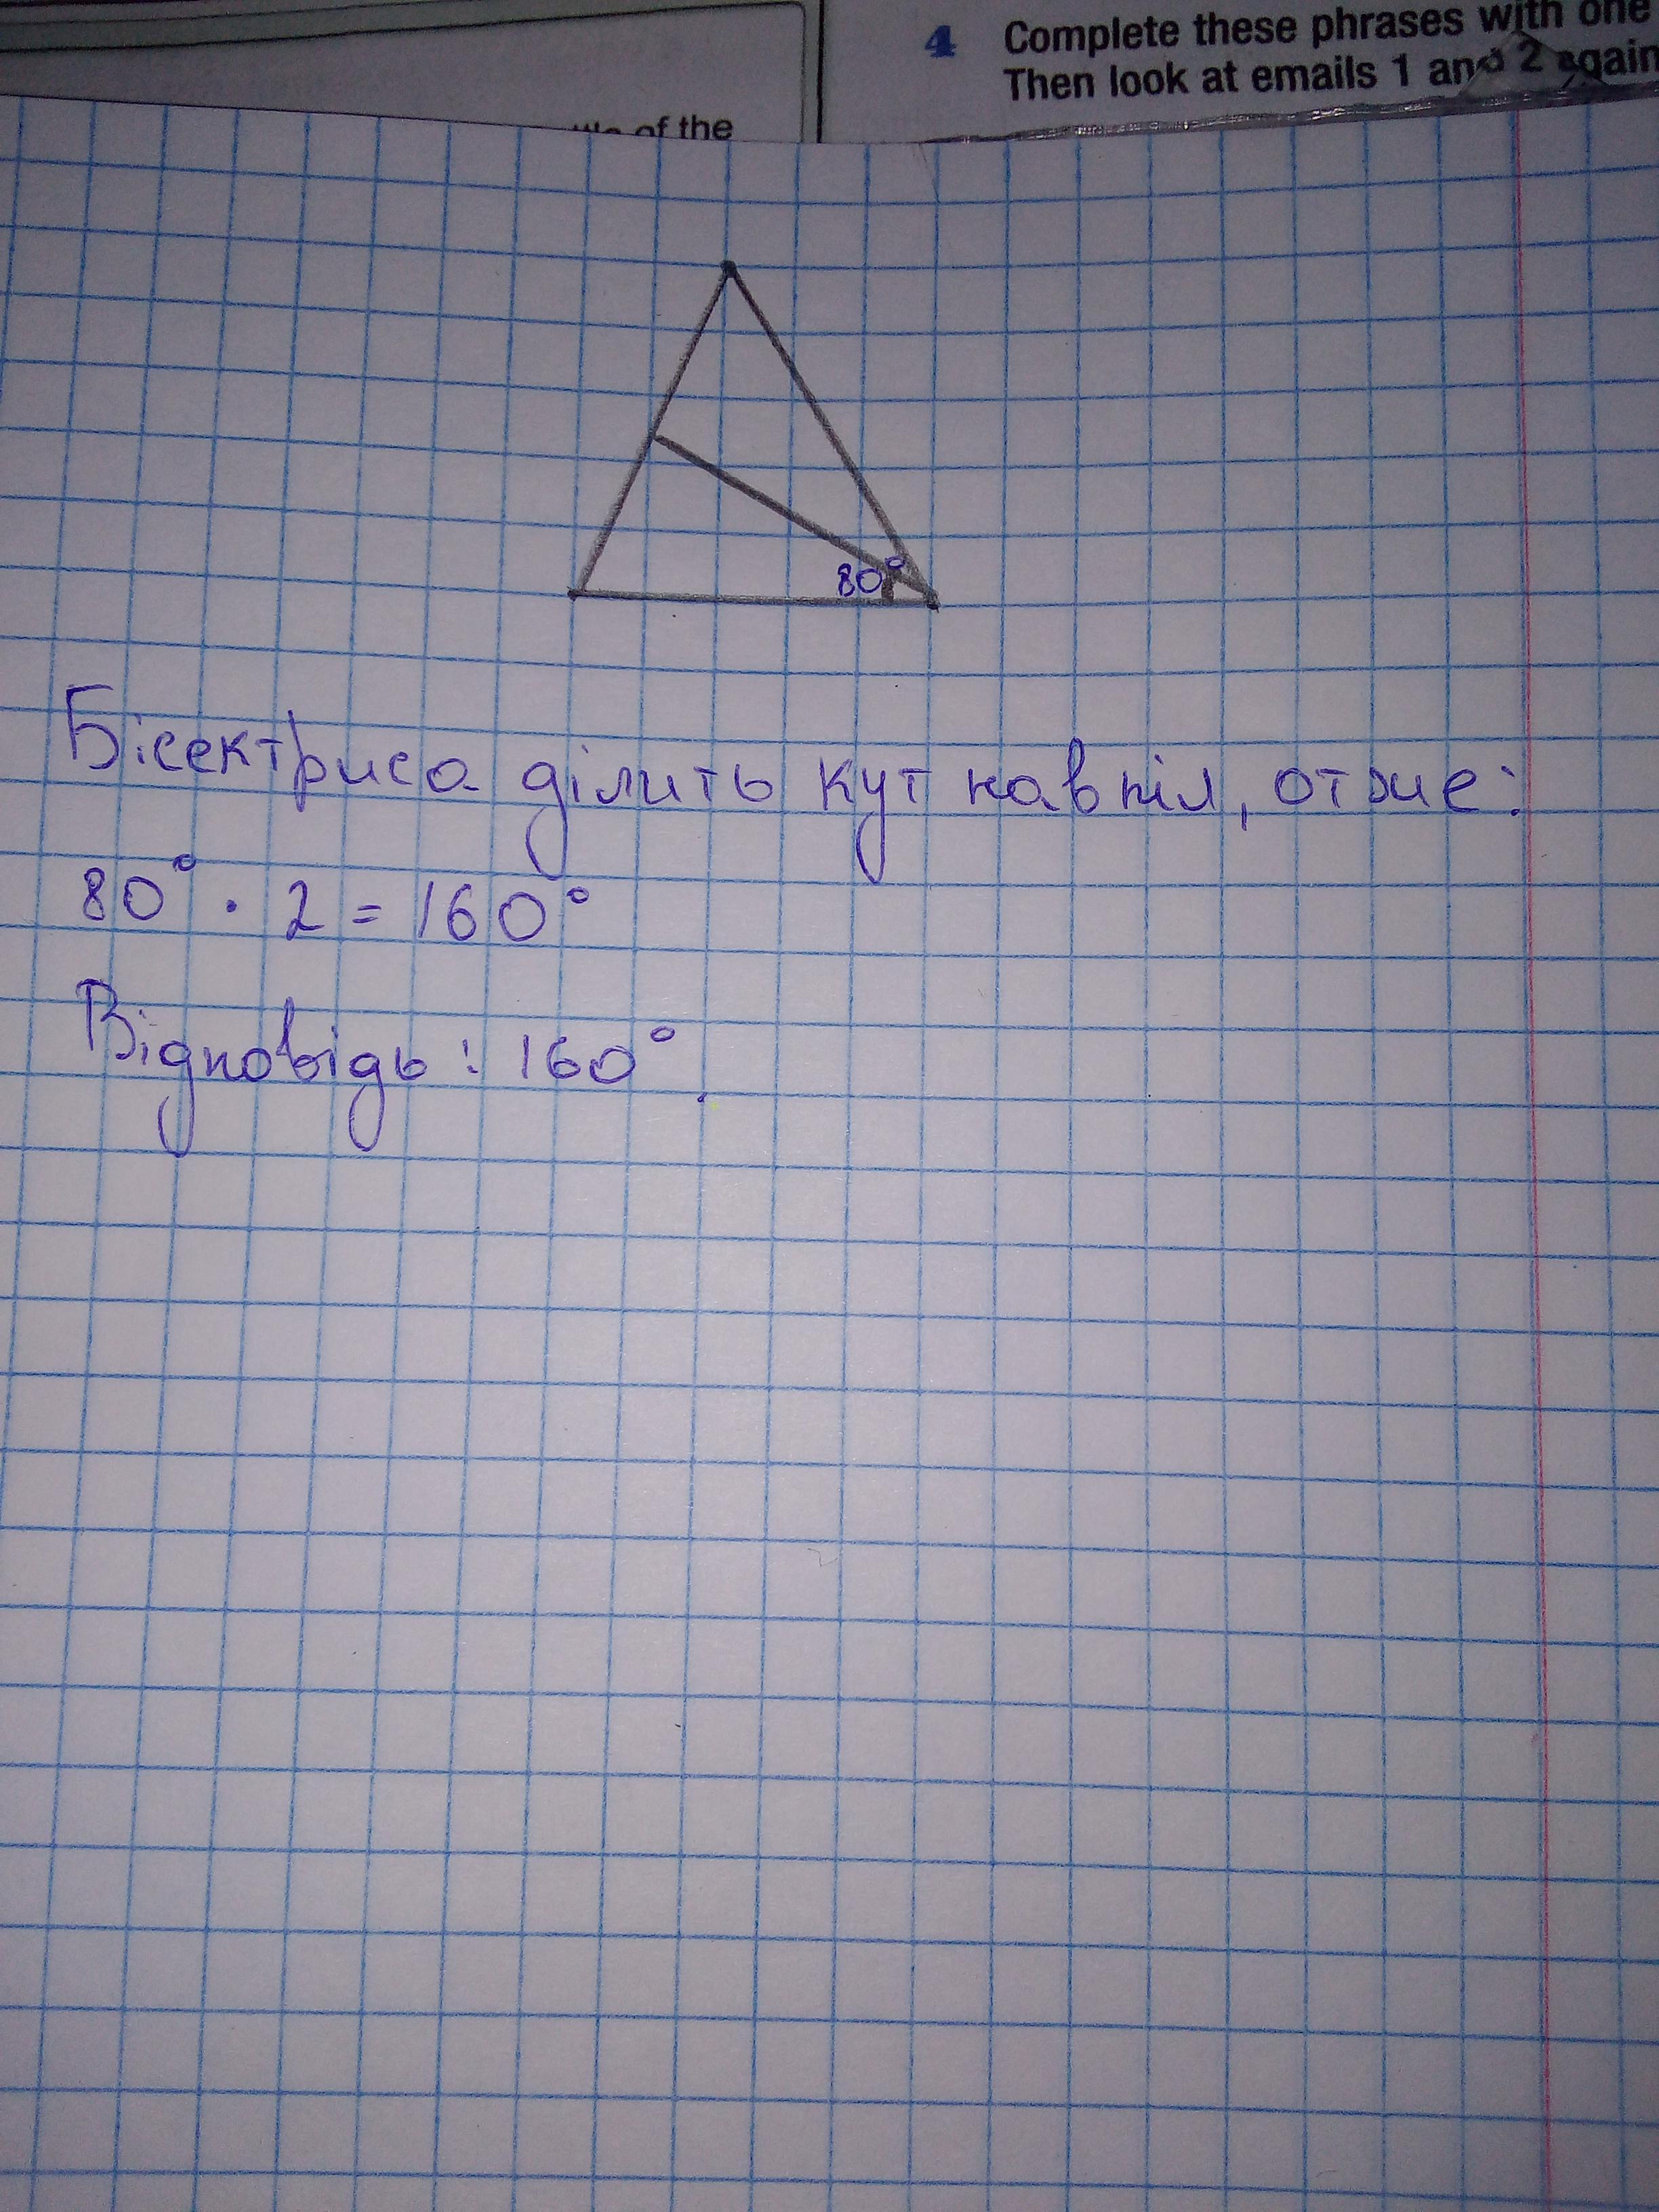 4 Complete these phrases with one
Then look at emails 1 and 2 again
of the
80°
Бісектриса ділить кут навпіл, отже:
80° · 2 = 160°
Відповідь: 160°.